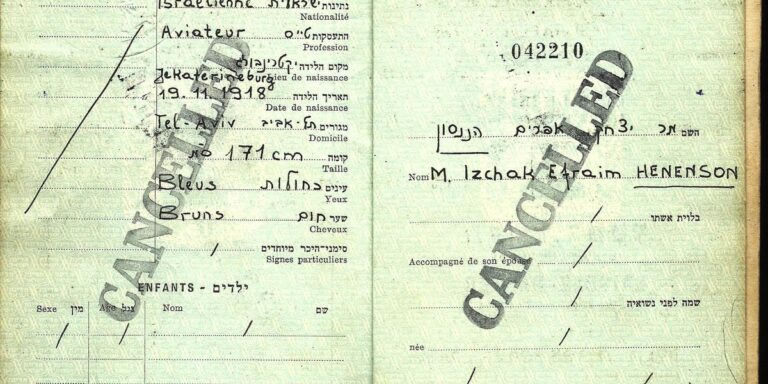 Israélienne נתינות ישראלית
Nationalité
Aviateur התעסקות טייס
Profession
מקום הלידה
Jekaterineburg Lieu de naissance
19.11.1918 תאריך הלידה
Date de naissance
Tel-Aviv מגורים תל-אביב
Domicile
171 cm קומה
Taille
Bleus עינים כחולות
Yeux
Bruns שער חום
Cheveux
/ סימני-היכר מיוחדים
Signes particuliers
ENFANTS - ילדים
Sexe מין Age גיל Nom שם
/ / /
CANCELLED
042210
השם מר יצחק אפרים הננסון
Nom M. Izchak Efraim HENENSON
/ בלוית אשתו
Accompagné de son épouse
/ שמה לפני נשואיה
née /
CANCELLED